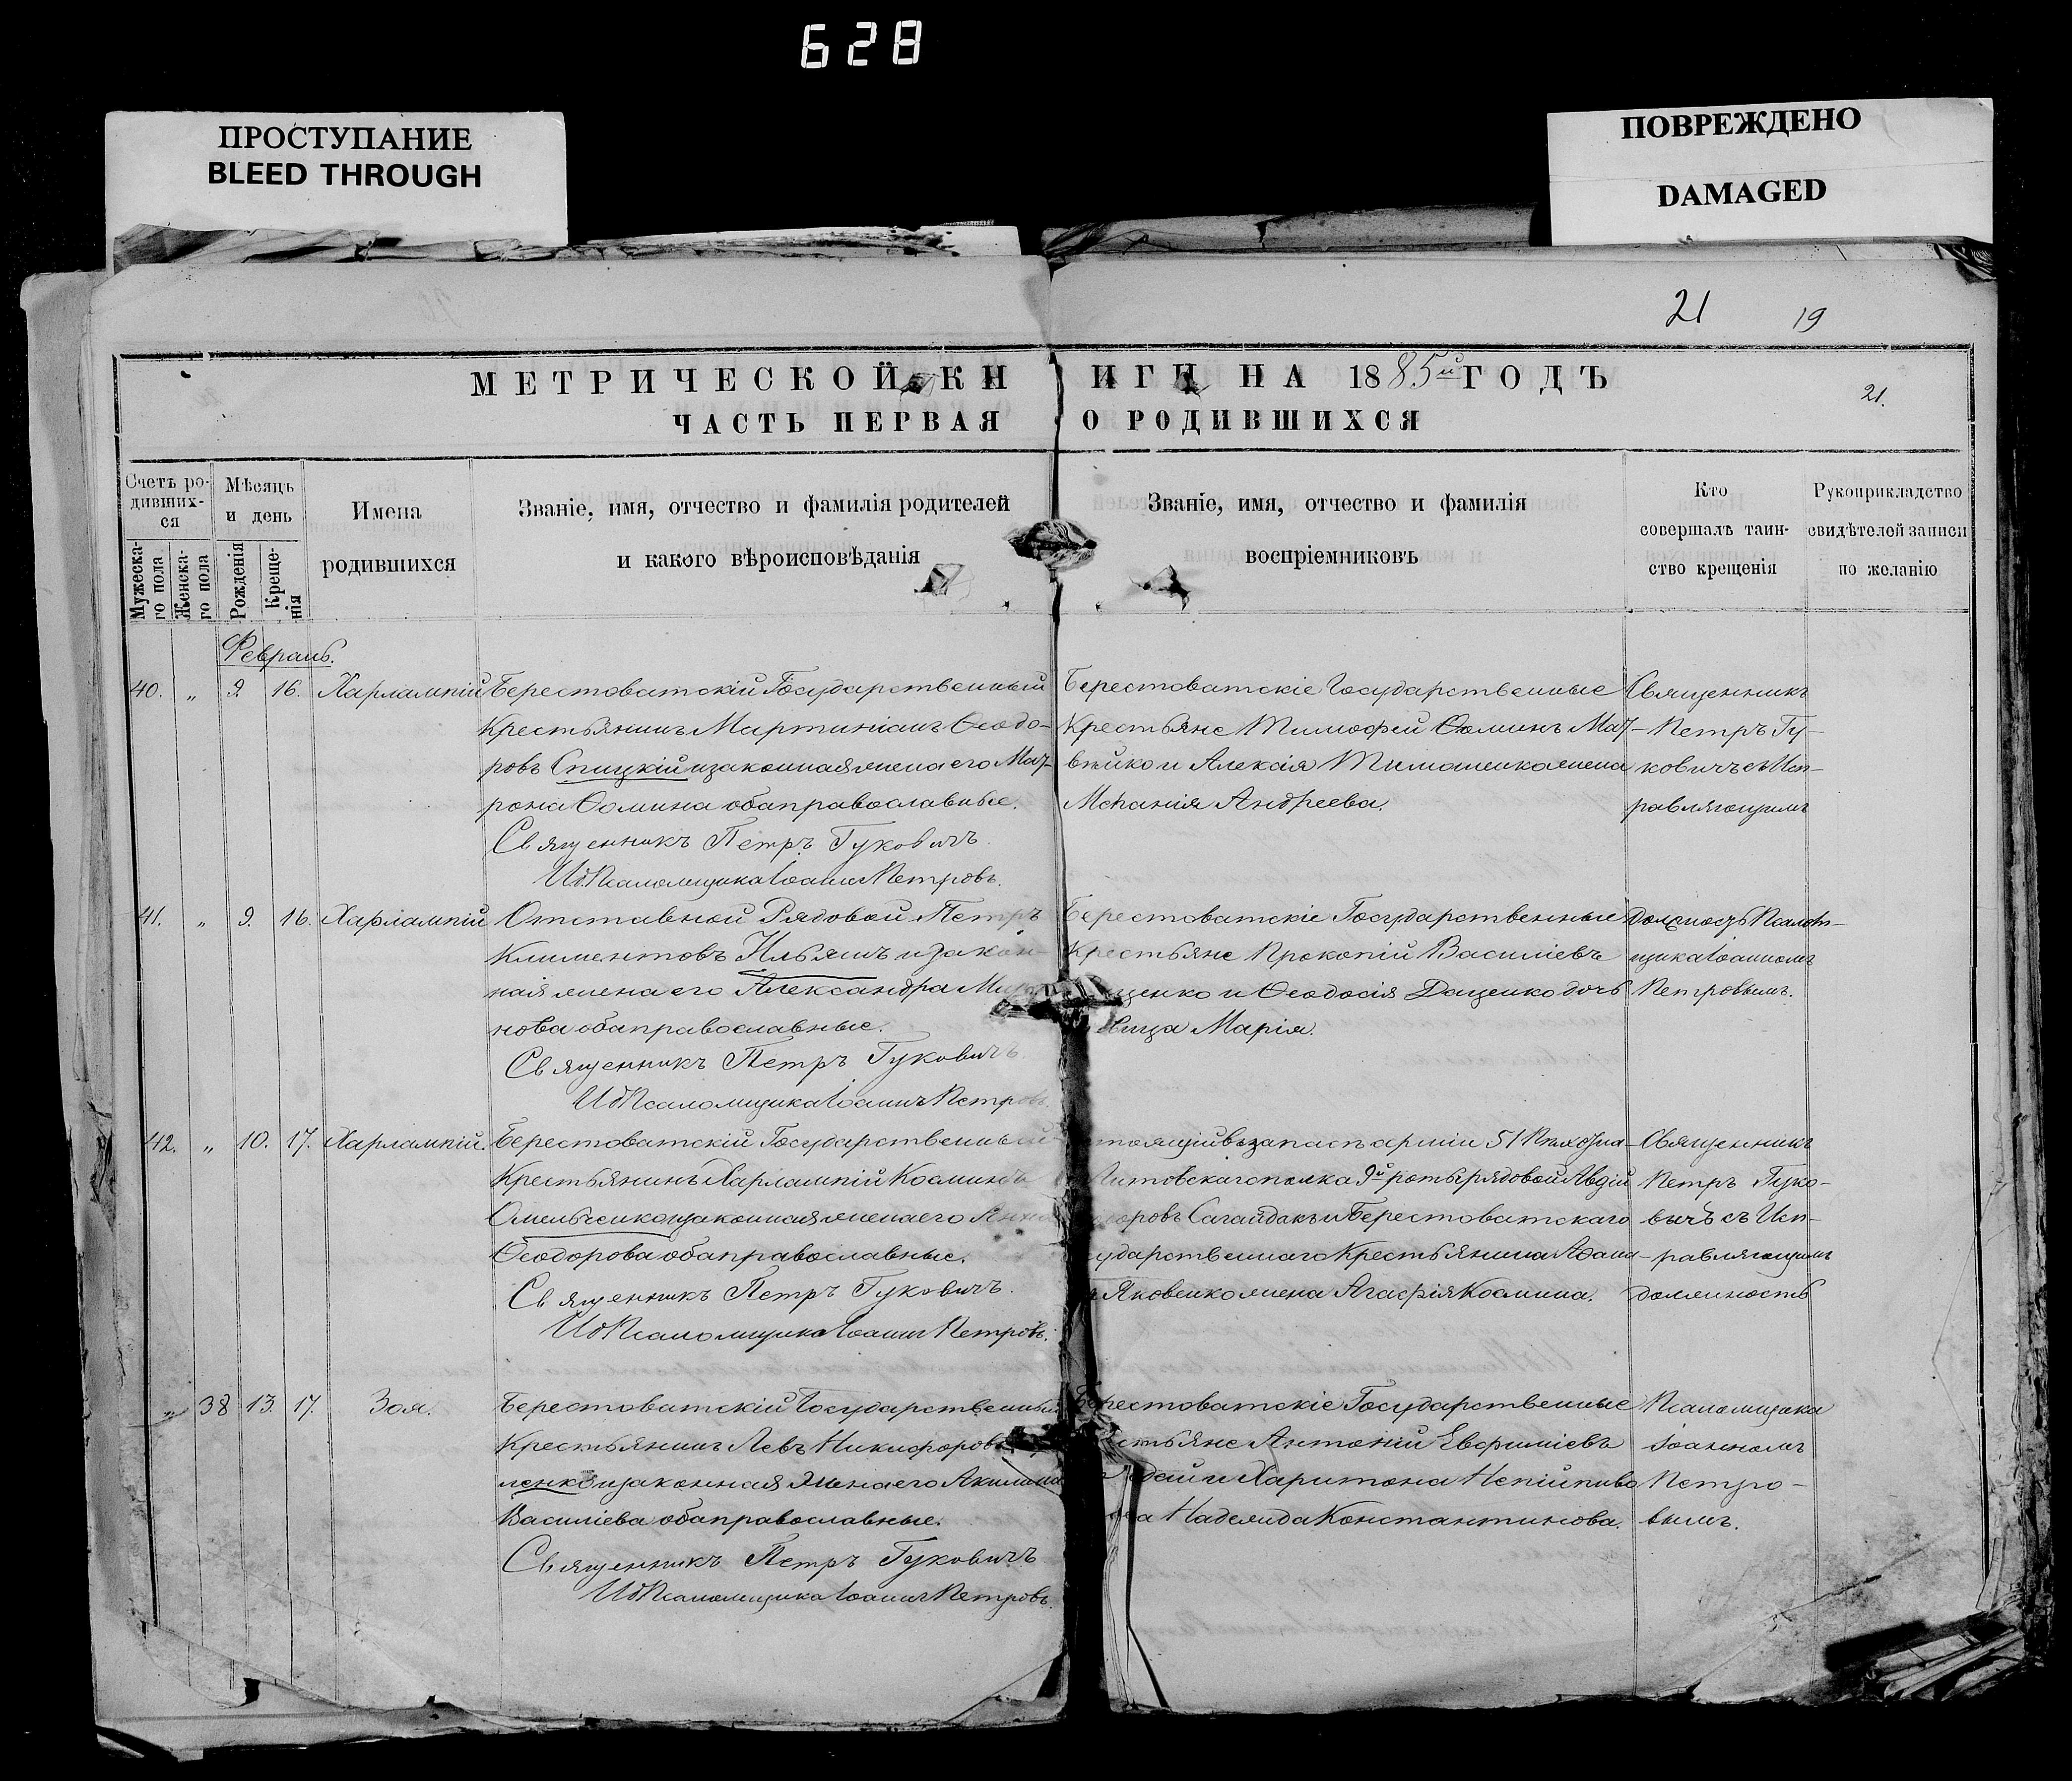 628
ПРОСТУПАНИЕ
BLEED THROUGH
ПОВРЕЖДЕНО
DAMAGED
21 19
МЕТРИЧЕСКОЙ КНИГИ НА 1885й ГОДЪ
21.
ЧАСТЬ ПЕРВАЯ О РОДИВШИХСЯ
Счетъ ро-
дивших-
ся
Мужеска-
го пола
Женска-
го пола
Мѣсяцъ
и день
Рожденія
Креще-
нія
Имена
родившихся
Званіе, имя, отчество и фамилія родителей
и какого вѣроисповѣданія
Званіе, имя, отчество и фамилія
воспріемниковъ
Кто
совершалъ таин-
ство крещенія
Рукоприкладство
свидѣтелей записи
по желанію
Февраль.
40. " 9 16. Харлампій
Берестоватскій Государственный
Крестьянинъ Мартиніанъ Ѳеодо-
ровъ Спицкій и законная жена его Мат-
рона Ѳомина оба православные.
Священникъ Петръ Гуковичъ
И д Псаломщика Іоаннъ Петровъ.
Берестоватскіе Государственные
Крестьяне Тимофей Ѳоминъ Мат-
вѣйко и Алексія Тимошенка жена
Меланія Андреева.
Священникъ
Петръ Гу-
ковичъ съ Исп-
равляющимъ
41. " 9. 16. Харлампій
Отставной Рядовой Петръ
Климентовъ Ильяшъ и закон-
ная жена его Александра
нова оба православные.
Священникъ Петръ Гуковичъ
И д Псаломщика Іоаннъ Петровъ
Берестоватскіе Государственные
Крестьяне Прокопій Василіевъ
щенко и Ѳеодосія Даценко дочь
вица Марія.
Должность Псалом-
щика Іоанномъ
Петровымъ.
42. " 10. 17. Харлампій.
Берестоватскій Государственный
Крестьянинъ Харлампій Косминъ
Омельченко и законная жена его
Ѳеодорова оба православные.
Священникъ Петръ Гуковичъ.
И д Псаломщика Іоаннъ Петровъ.
тоящій въ запасѣ арміи 51
Литовскаго полка 9й роты рядовой Авдій
доровъ Сагайдакъ и Берестоватскаго
сударственнаго Крестьянина Аѳана-
Яковенко жена Агафія Космина.
Священникъ
Петръ Гуко-
вичъ съ Исп-
равляющимъ
должность
" 38 13. 17. Зоя.
Берестоватскій Государственный
Крестьянинъ Левъ Никифоровъ
ленко и законная жена его Акилина
Василіева оба православные.
Священникъ Петръ Гуковичъ
И д Псаломщика Іоаннъ Петровъ.
Берестоватскіе Государственные
стьяне Антоній Евфиміевъ
дай и Харитона Непійпиво
Надежда Константинова.
Псаломщика
Іоанномъ
Петро-
вымъ.